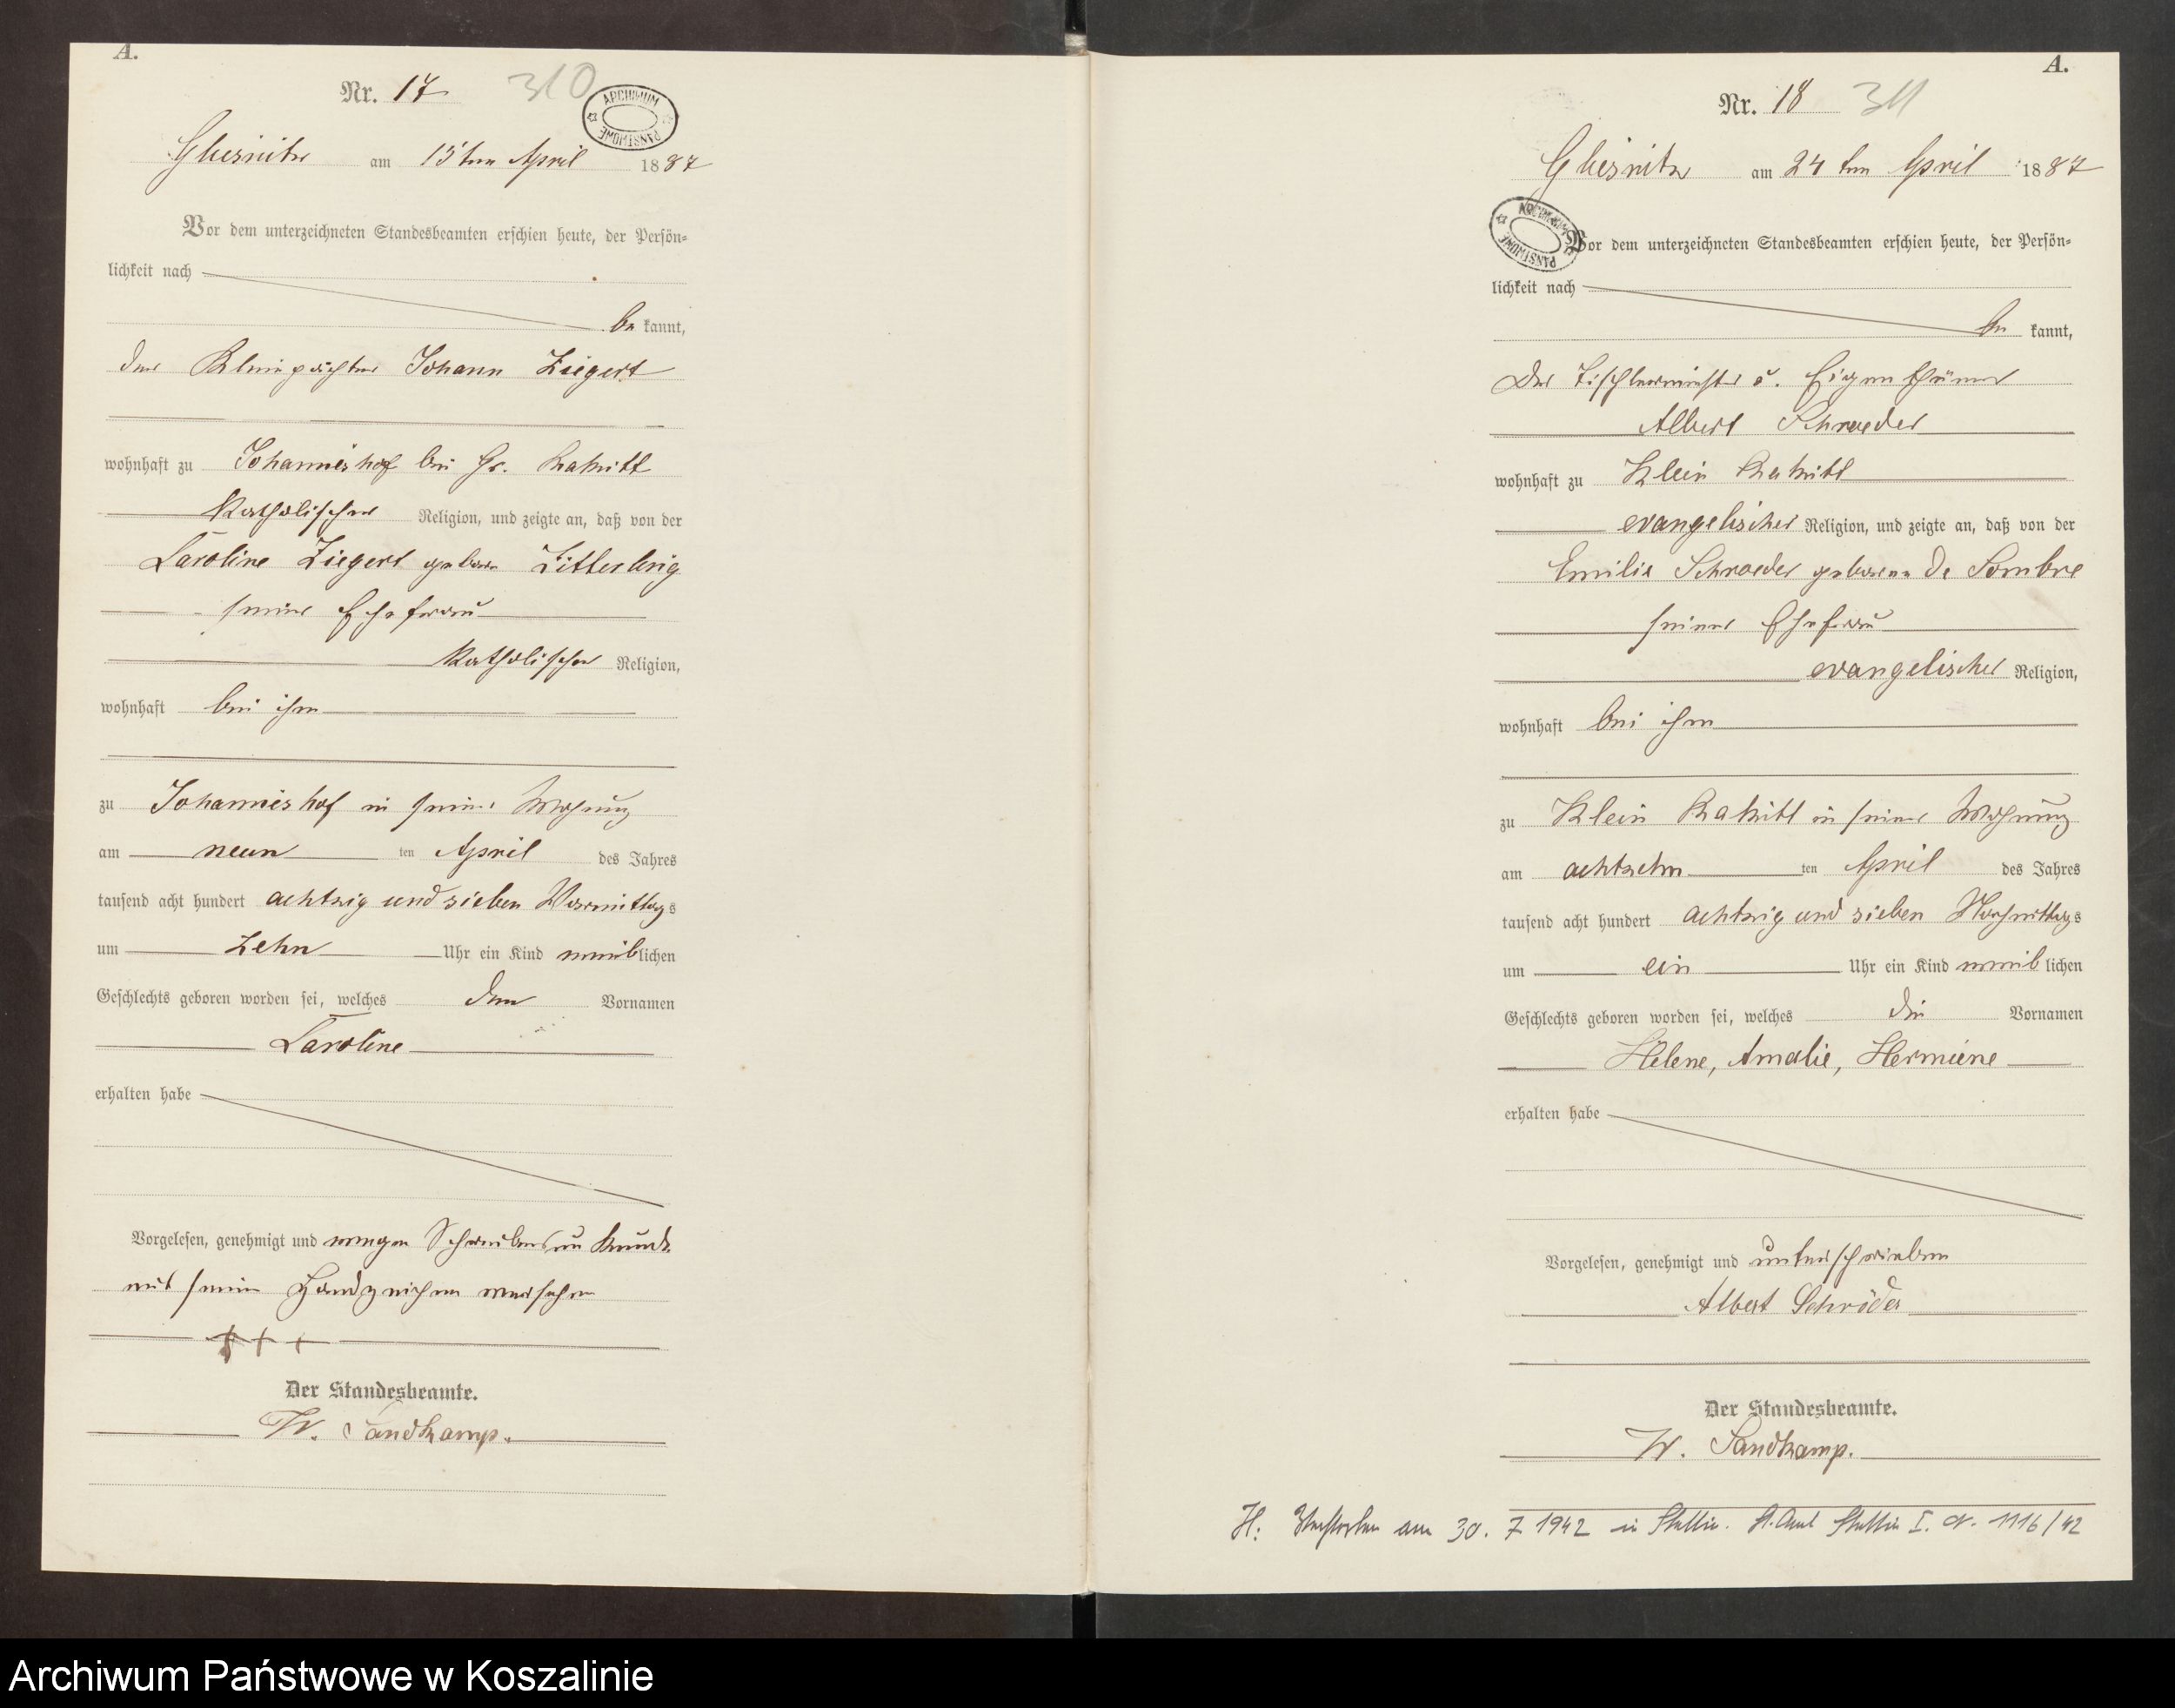 A.
Nr. 17 310
ARCHIWUM PAŃSTWOWE
Gliesnitz am 15ten April 1887
Vor dem unterzeichneten Standesbeamten erschien heute, der Persön-
lichkeit nach
be kannt,
der Kleinpächter Johann Ziegert
wohnhaft zu Johannishof bei Gr. Rakitt
katholischer Religion, und zeigte an, daß von der
Caroline Ziegert geborne Zitterling
seiner Ehefrau
katholischer Religion,
wohnhaft bei ihm
zu Johannishof in seiner Wohnung
am neun ten April des Jahres
tausend acht hundert achtzig und sieben Vormittags
um zehn Uhr ein Kind weiblichen
Geschlechts geboren worden sei, welches den Vornamen
Caroline
erhalten habe
Vorgelesen, genehmigt und wegen Schreibensunkunde
mit seinem Handzeichen versehen
+ + +
Der Standesbeamte.
W. Sandkamp.
A.
Nr. 18 311
Gliesnitz am 24ten April 1887
ARCHIWUM PAŃSTWOWE
Vor dem unterzeichneten Standesbeamten erschien heute, der Persön-
lichkeit nach
be kannt,
Der Tischlermeister u. Eigenthümer
Albert Schroeder
wohnhaft zu Klein Rakitt
evangelischer Religion, und zeigte an, daß von der
Emilie Schroeder geborene de Sombre
seiner Ehefrau
evangelischer Religion,
wohnhaft bei ihm
zu Klein Rakitt in seiner Wohnung
am achtzehn ten April des Jahres
tausend acht hundert achtzig und sieben Nachmittags
um ein Uhr ein Kind weib lichen
Geschlechts geboren worden sei, welches die Vornamen
Helene, Amalie, Hermiene
erhalten habe
Vorgelesen, genehmigt und unterschrieben
Albert Schröder
Der Standesbeamte.
W. Sandkamp.
H: Verstorben am 30. 7 1942 in Stettin. St.Amt Stettin I. Nr. 1116/42
Archiwum Państwowe w Koszalinie